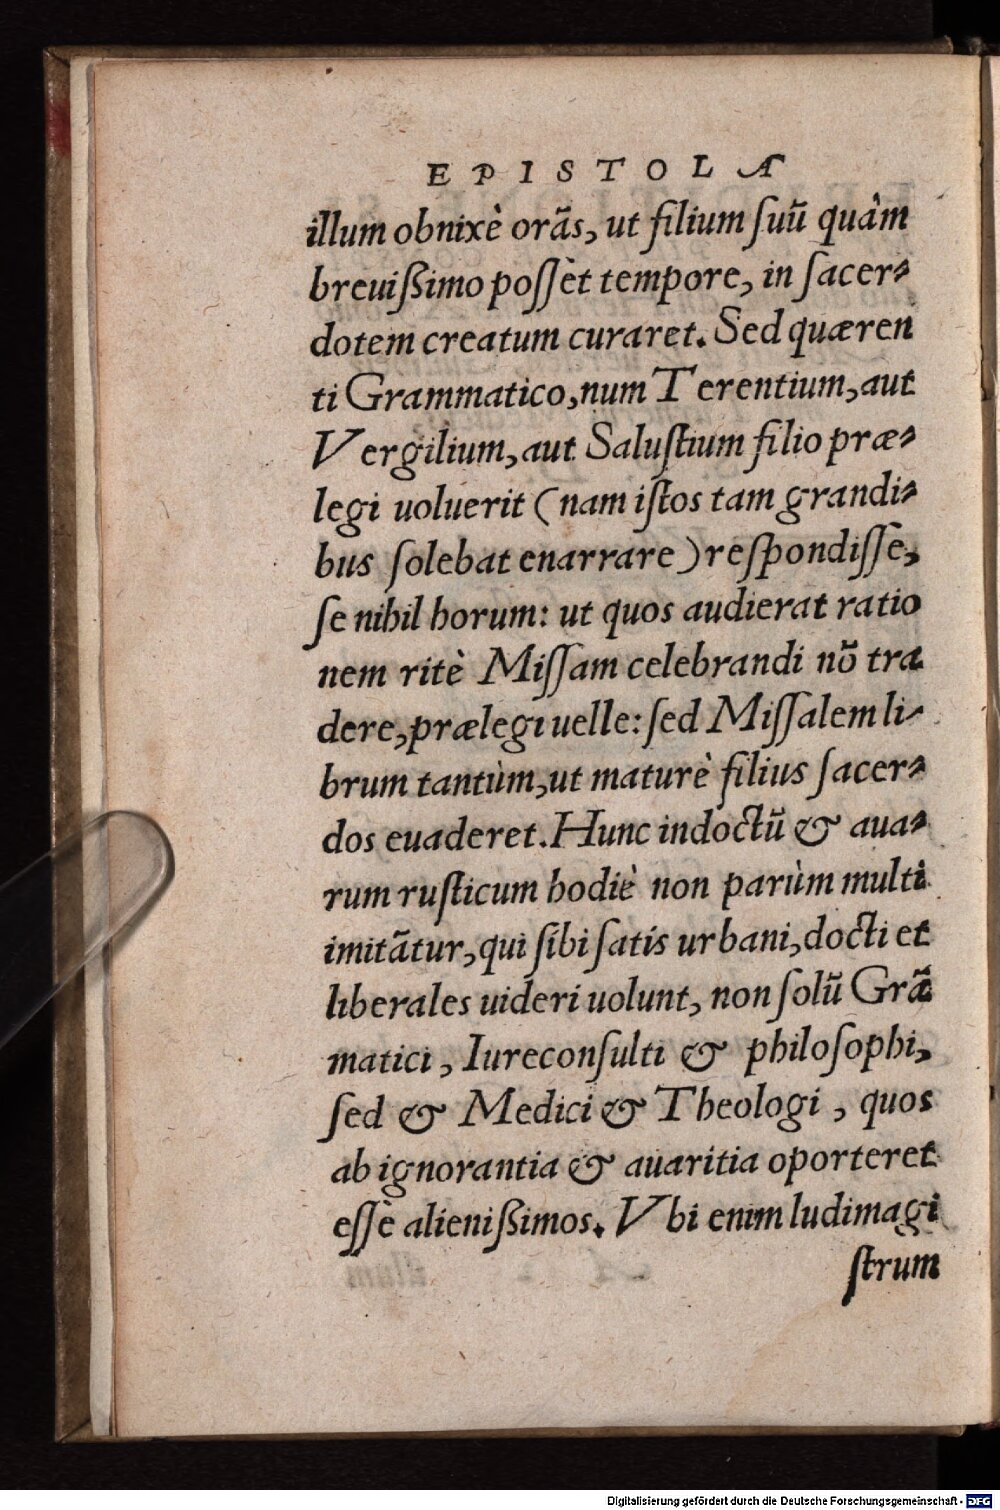 EPISTOLA
illum obnixè orãs, ut filium ſuũ quàm
breuißimo poſſèt tempore, in ſacer-
dotem creatum curaret. Sed quæren
ti Grammatico, num Terentium, aut
Vergilium, aut Saluſtium filio præ-
legi uoluerit (nam iſtos tam grandi-
bus ſolebat enarrare) reſpondiſſe,
ſe nihil horum: ut quos audierat ratio
nem ritè Miſſam celebrandi nõ tra
dere, prælegi uelle: ſed Miſſalem li-
brum tantùm, ut maturè filius ſacer-
dos euaderet. Hunc indoctũ & aua-
rum ruſticum hodiè non parùm multi
imitãtur, qui ſibi ſatis urbani, docti et
liberales uideri uolunt, non ſolũ Grã
matici, Iureconſulti & philoſophi,
ſed & Medici & Theologi, quos
ab ignorantia & auaritia oporteret
eſſè alienißimos. Vbi enim ludimagi
ſtrum
Digitalisierung gefördert durch die Deutsche Forschungsgemeinschaft - DFG